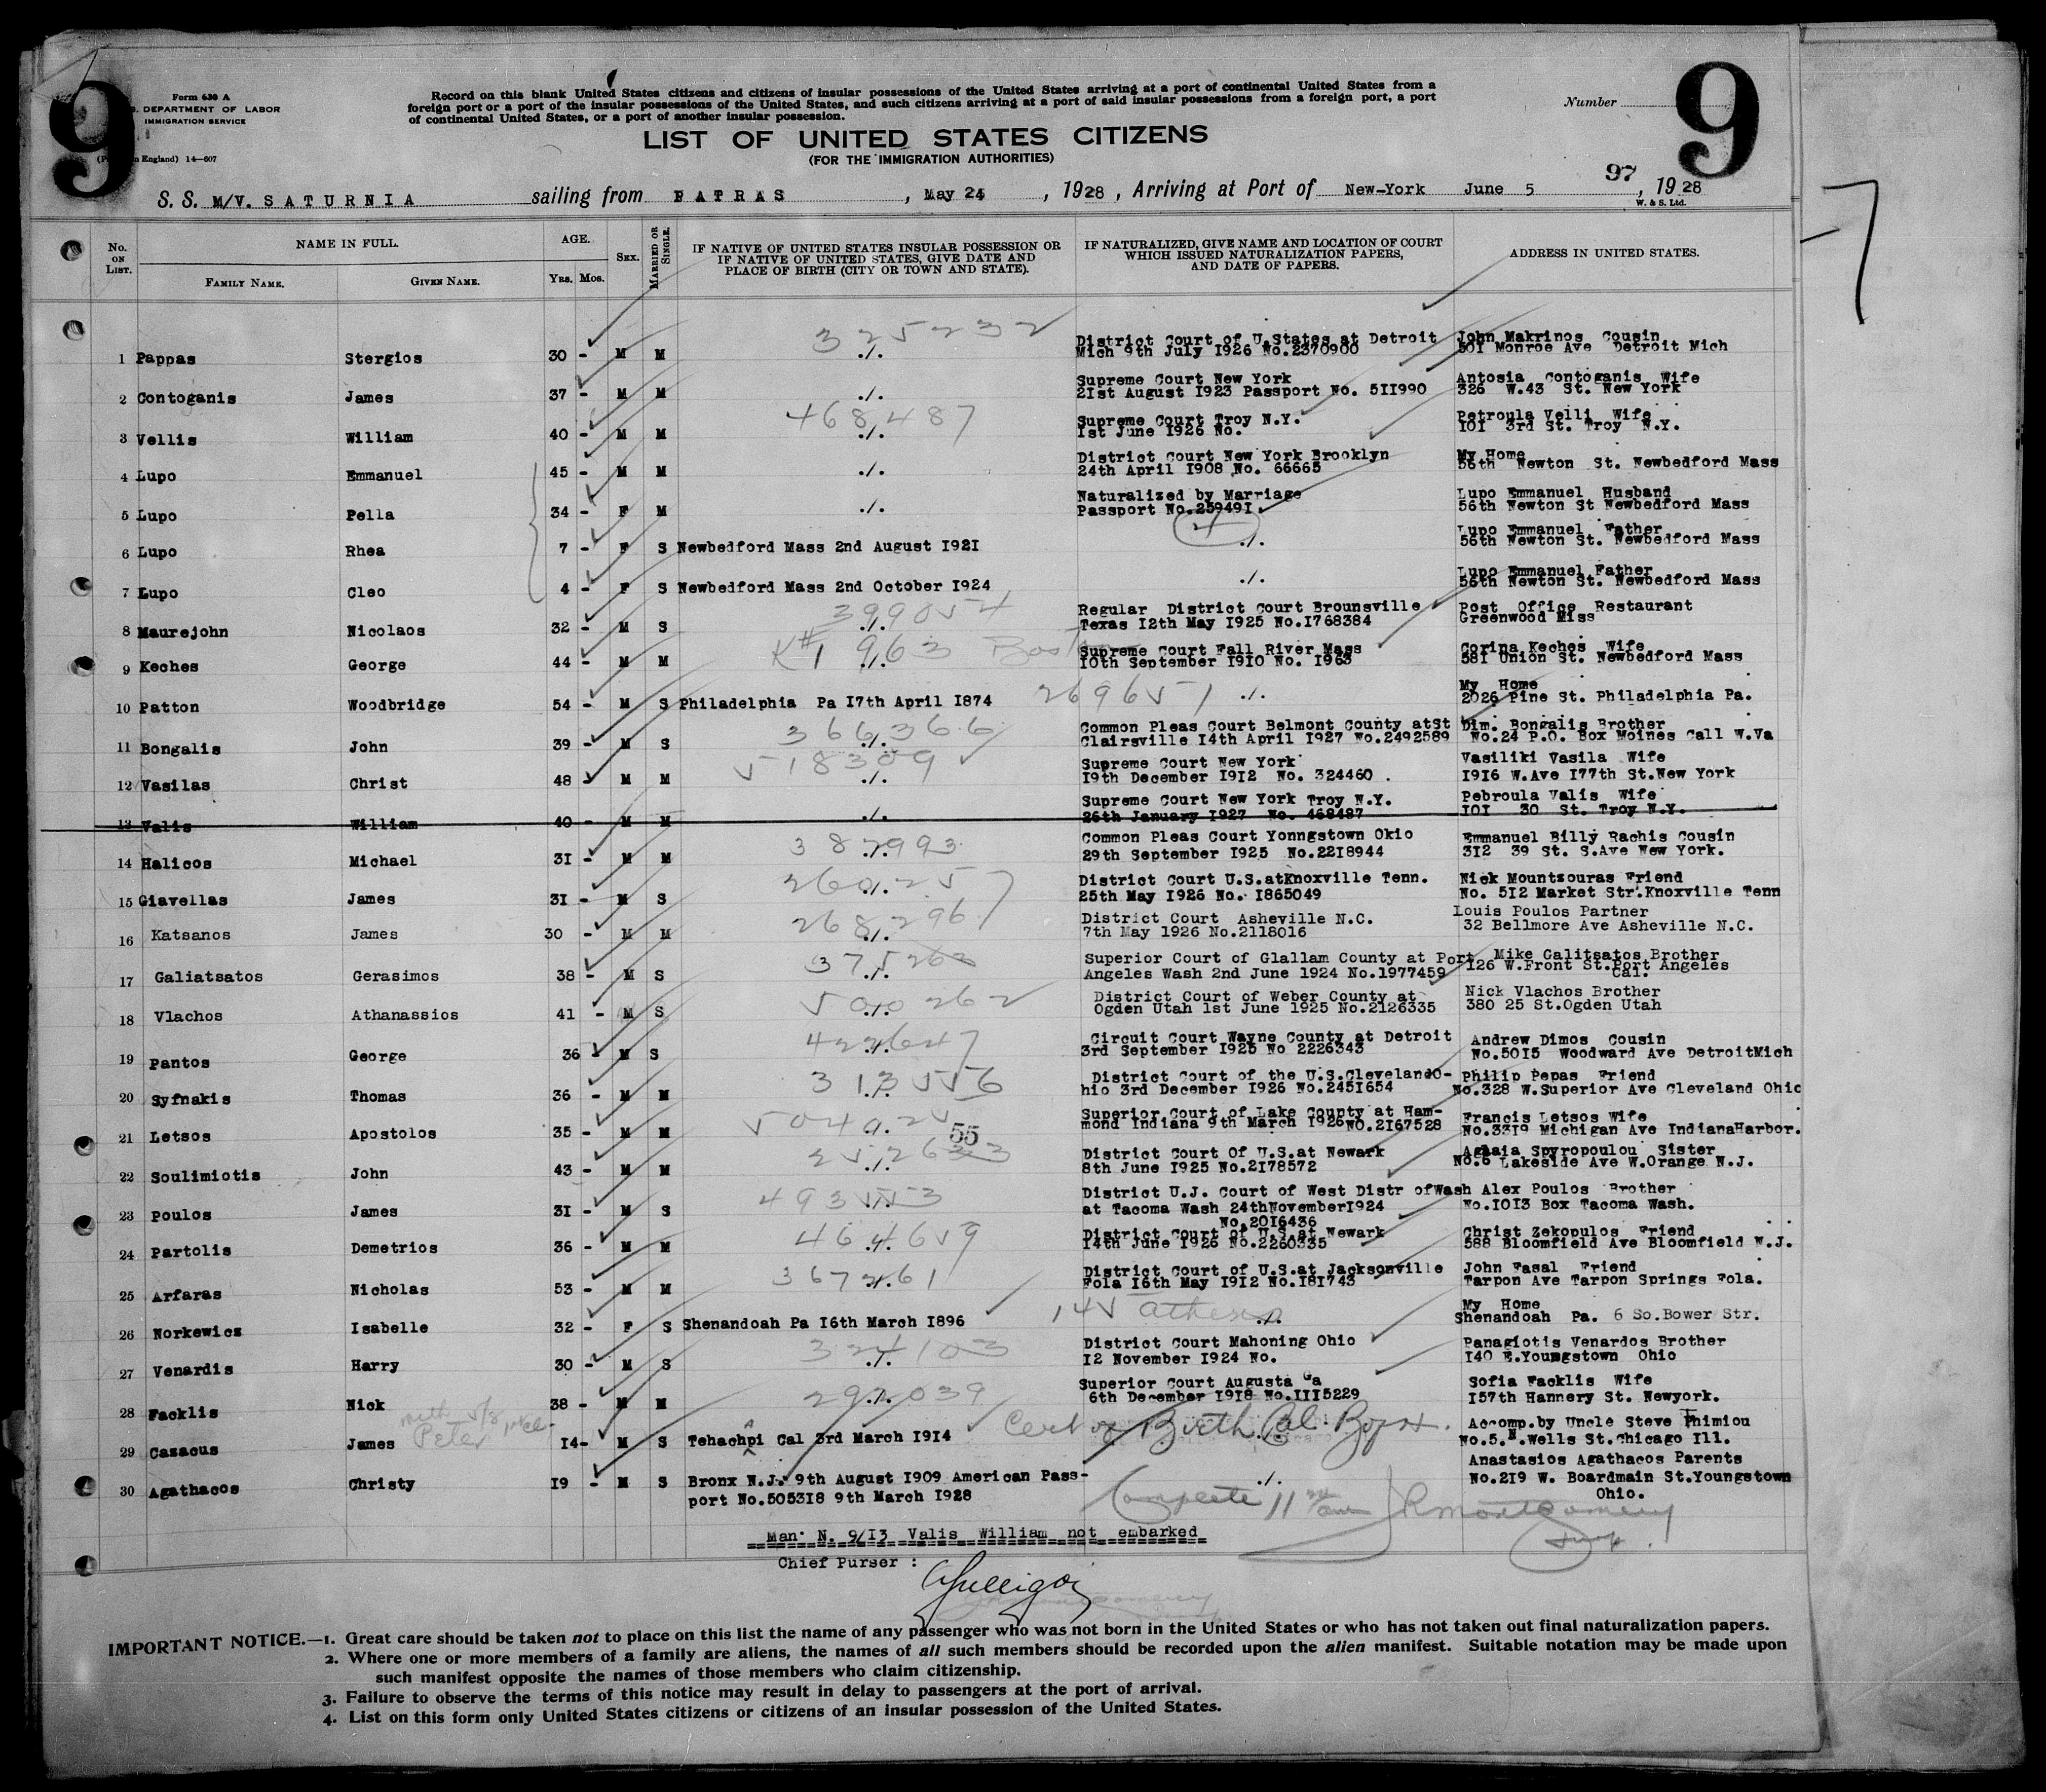 9
9
Form 630 A
DEPARTMENT OF LABOR
IMMIGRATION SERVICE
England) 14—607
Record on this blank United States citizens and citizens of insular possessions of the United States arriving at a port of continental United States from a
foreign port or a port of the insular possessions of the United States, and such citizens arriving at a port of said insular possessions from a foreign port, a port
of continental United States, or a port of another insular possession.
Number
LIST OF UNITED STATES CITIZENS
(FOR THE IMMIGRATION AUTHORITIES)
97
S. S. M/V. SATURNIA sailing from PATRAS, May 24, 1928, Arriving at Port of New-York June 5, 1928
W. & S. Ltd.
No. ON LIST. NAME IN FULL. FAMILY NAME. GIVEN NAME. AGE. Yrs. Mos. SEX. MARRIED OR SINGLE.
IF NATIVE OF UNITED STATES INSULAR POSSESSION OR
IF NATIVE OF UNITED STATES, GIVE DATE AND
PLACE OF BIRTH (CITY OR TOWN AND STATE).
IF NATURALIZED, GIVE NAME AND LOCATION OF COURT
WHICH ISSUED NATURALIZATION PAPERS,
AND DATE OF PAPERS.
ADDRESS IN UNITED STATES.
325232
District Court of U.States at Detroit John Makrinos Cousin
1 Pappas Stergios 30 - M M ./. Mich 9th July 1926 No.2370900 501 Monroe Ave Detroit Mich
Supreme Court New York Antosia Contoganis Wife
2 Contoganis James 37 - M M ./. 21st August 1923 Passport No. 511990 326 W.43 St. New York
468487
Supreme Court Troy N.Y. Petroula Velli Wife
3 Vellis William 40 - M M ./. 1st June 1926 No. 101 3rd St. Troy N.Y.
District Court New York Brooklyn My Home
4 Lupo Emmanuel 45 - M M ./. 24th April 1908 No. 66665 56th Newton St. Newbedford Mass
Naturalized by Marriage Lupo Emmanuel Husband
5 Lupo Pella 34 - F M ./. Passport No.259491 56th Newton St Newbedford Mass
Lupo Emmanuel Father
6 Lupo Rhea 7 - F S Newbedford Mass 2nd August 1921 ./. 56th Newton St. Newbedford Mass
Lupo Emmanuel Father
7 Lupo Cleo 4 - F S Newbedford Mass 2nd October 1924 ./. 56th Newton St. Newbedford Mass
399054
Regular District Court Brounsville Post Office Restaurant
8 Maurejohn Nicolaos 32 - M S ./. Texas 12th May 1925 No.1768384 Greenwood Miss
K# 1963
Supreme Court Fall River Mass Corina Keches Wife
9 Keches George 44 - M M ./. 10th September 1910 No. 1963 581 Union St. Newbedford Mass
269651
My Home
10 Patton Woodbridge 54 - M S Philadelphia Pa 17th April 1874 ./. 2026 Pine St. Philadelphia Pa.
366366
Common Pleas Court Belmont County atSt Dim. Bongalis Brother
11 Bongalis John 39 - M S ./. Clairsville 14th April 1927 No.2492589 No.24 P.O. Box Moines Call W.Va
518309
Supreme Court New York Vasiliki Vasila Wife
12 Vasilas Christ 48 - M M ./. 19th December 1912 No. 324460 . 1916 W.Ave 177th St.New York
Supreme Court New York Troy N.Y. Pebroula Valis Wife
13 Valis William 40 - M M ./. 26th January 1927 No. 468487 101 30 St. Troy N.Y.
Common Pleas Court Yonngstown Okio Emmanuel Billy Rachis Cousin
14 Halicos Michael 31 - M M ./. 29th September 1925 No.2218944 312 39 St. S.Ave New York.
District Court U.S.atKnoxville Tenn. Nick Mountzouras Friend
15 Giavellas James 31 - M S ./. 25th May 1926 No. 1865049 No. 512 Market Str.Knoxville Tenn
District Court Asheville N.C. Louis Poulos Partner
16 Katsanos James 30 - M M ./. 7th May 1926 No.2118016 32 Bellmore Ave Asheville N.C.
Superior Court of Glallam County at Port Mike Galitsatos Brother
17 Galiatsatos Gerasimos 38 - M S ./. Angeles Wash 2nd June 1924 No.1977459 126 W.Front St.Port Angeles
Cal.
District Court of Weber County at Nick Vlachos Brother
18 Vlachos Athanassios 41 - M S ./. Ogden Utah 1st June 1925 No.2126335 380 25 St.Ogden Utah
Circuit Court Wayne County at Detroit Andrew Dimos Cousin
19 Pantos George 36 M S ./. 3rd September 1925 No 2226343 No.5015 Woodward Ave DetroitMich
District Court of the U.S.ClevelandO- Philip Pepas Friend
20 Syfnakis Thomas 36 - M M ./. hio 3rd December 1926 No.2451654 No.328 W.Superior Ave Cleveland Ohio
Superior Court of Lake County at Ham- Francis Letsos Wife
21 Letsos Apostolos 35 - M M ./. mond Indiana 9th March 1926 No.2167528 No.3319 Michigan Ave IndianaHarbor.
55
District Court Of U.S.at Newark Aglaia Spyropoulou Sister
22 Soulimiotis John 43 - M M ./. 8th June 1925 No.2178572 No.6 Lakeside Ave W.Orange N.J.
District U.J. Court of West Distr ofWash Alex Poulos Brother
23 Poulos James 31 - M S ./. at Tacoma Wash 24thNovember1924 No.1013 Box Tacoma Wash.
No.2016436
464659
District Court of U.S.at Newark Christ Zekopulos Friend
24 Partolis Demetrios 36 - M M ./. 14th June 1926 No.2260335 588 Bloomfield Ave Bloomfield W.J.
District Court of U.S.at Jacksonville John Fasal Friend
25 Arfaras Nicholas 53 - M M ./. Fola 16th May 1912 No.181743 Tarpon Ave Tarpon Springs Fola.
My Home
26 Norkewicz Isabelle 32 - F S Shenandoah Pa 16th March 1896 ./. Shenandoah Pa. 6 So.Bower Str.
324103
District Court Mahoning Ohio Panagiotis Venardos Brother
27 Venardis Harry 30 - M S ./. 12 November 1924 No. 140 E.Youngstown Ohio
Superior Court Augusta Ga Sofia Facklis Wife
28 Facklis Nick 38 - M M ./. 6th December 1918 No.1115229 157th Hannery St. Newyork.
Peter Cert of Birth Cal. Accomp.by Uncle Steve Thimiou
29 Cazacus James 14- M S Tehachpi Cal 3rd March 1914 No.5.N.Wells St.Chicago Ill.
Anastasios Agathacos Parents
30 Agathacos Christy 19 - M S Bronx N.J. 9th August 1909 American Pass- ./. No.219 W. Boardmain St.Youngstown
port No.505318 9th March 1928 Ohio.
Complete 11 Montgomery
Man. N. 9/13 Valis William not embarked
Chief Purser :
IMPORTANT NOTICE.—1. Great care should be taken not to place on this list the name of any passenger who was not born in the United States or who has not taken out final naturalization papers.
2. Where one or more members of a family are aliens, the names of all such members should be recorded upon the alien manifest. Suitable notation may be made upon
such manifest opposite the names of those members who claim citizenship.
3. Failure to observe the terms of this notice may result in delay to passengers at the port of arrival.
4. List on this form only United States citizens or citizens of an insular possession of the United States.